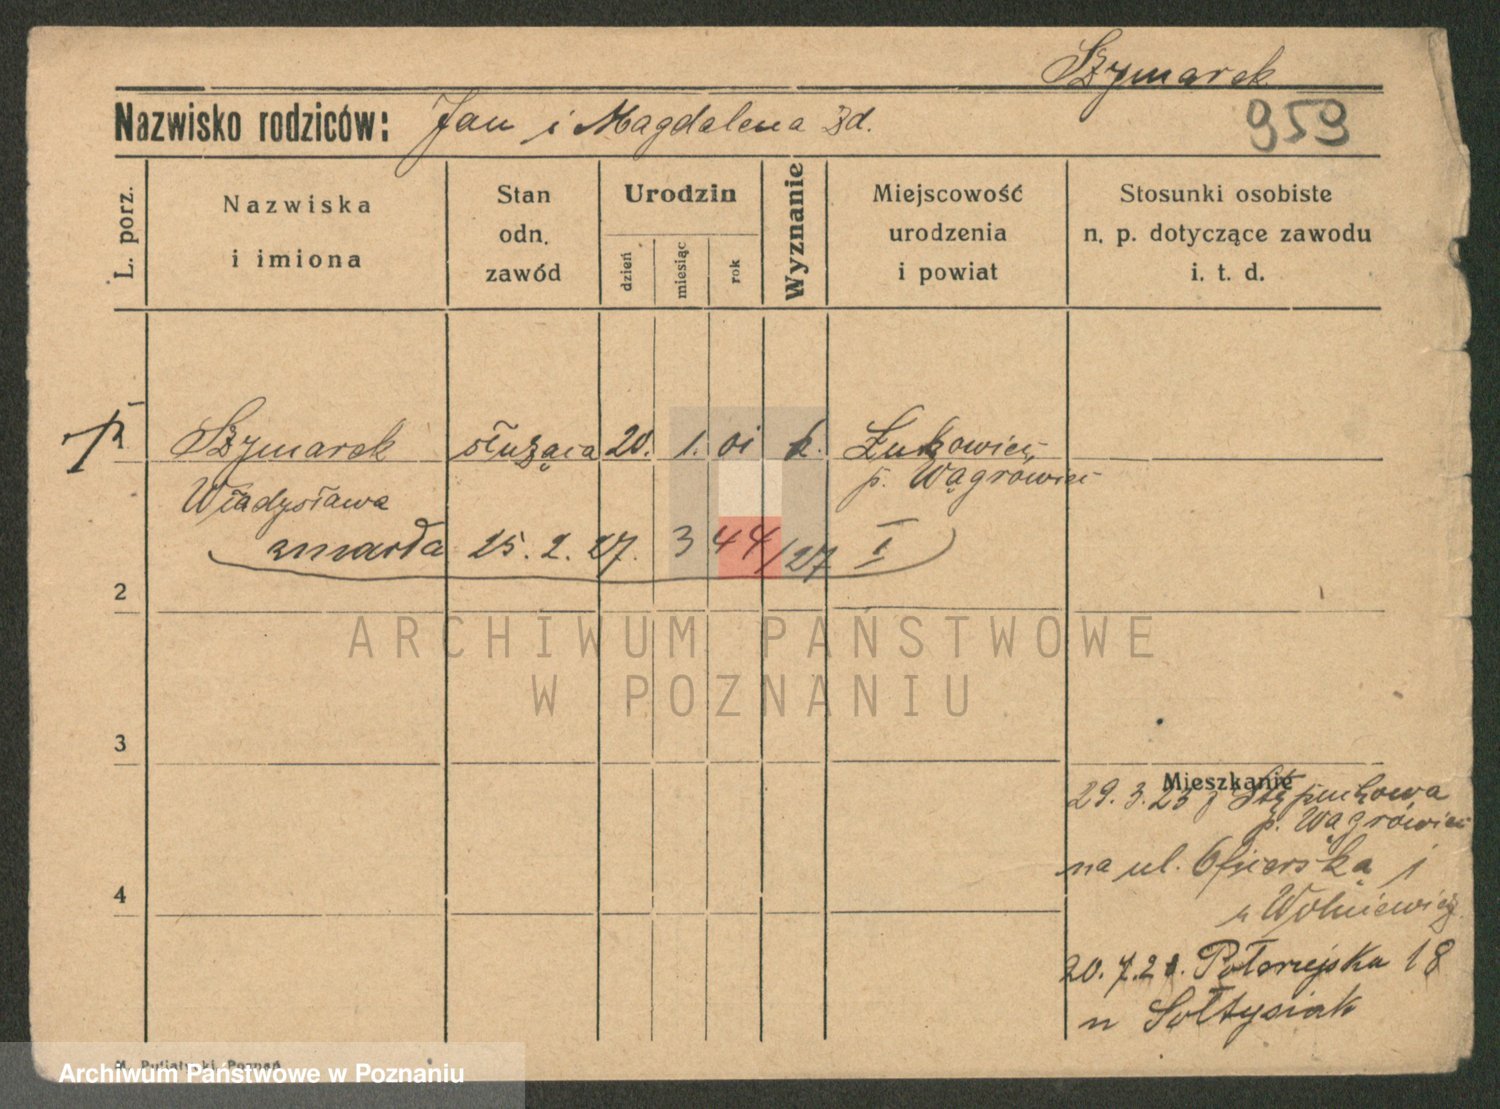 Szymarek
Nazwisko rodziców: Jan i Magdalena Zd.
959
L. porz.
Nazwiska
i imiona
Stan
odn.
zawód
Urodzin
dzień
miesiąc
rok
Wyznanie
Miejscowość
urodzenia
i powiat
Stosunki osobiste
n. p. dotyczące zawodu
i. t. d.
1 Szymarek służąca 20. 1. 01 k. Łukowiec
Władysława p. Wągrówiec
zmarła 25. 2. 27. 344/27 I
2
ARCHIWUM PAŃSTWOWE
W POZNANIU
3
Mieszkanie
29. 3. 23 z Stępuchowa
p. Wągrówiec
na ul. Oficerską 1
u Wolniewicz
4
20. 7. Połwiejska 18
u Sołtysiak
Poznań
Archiwum Państwowe w Poznaniu